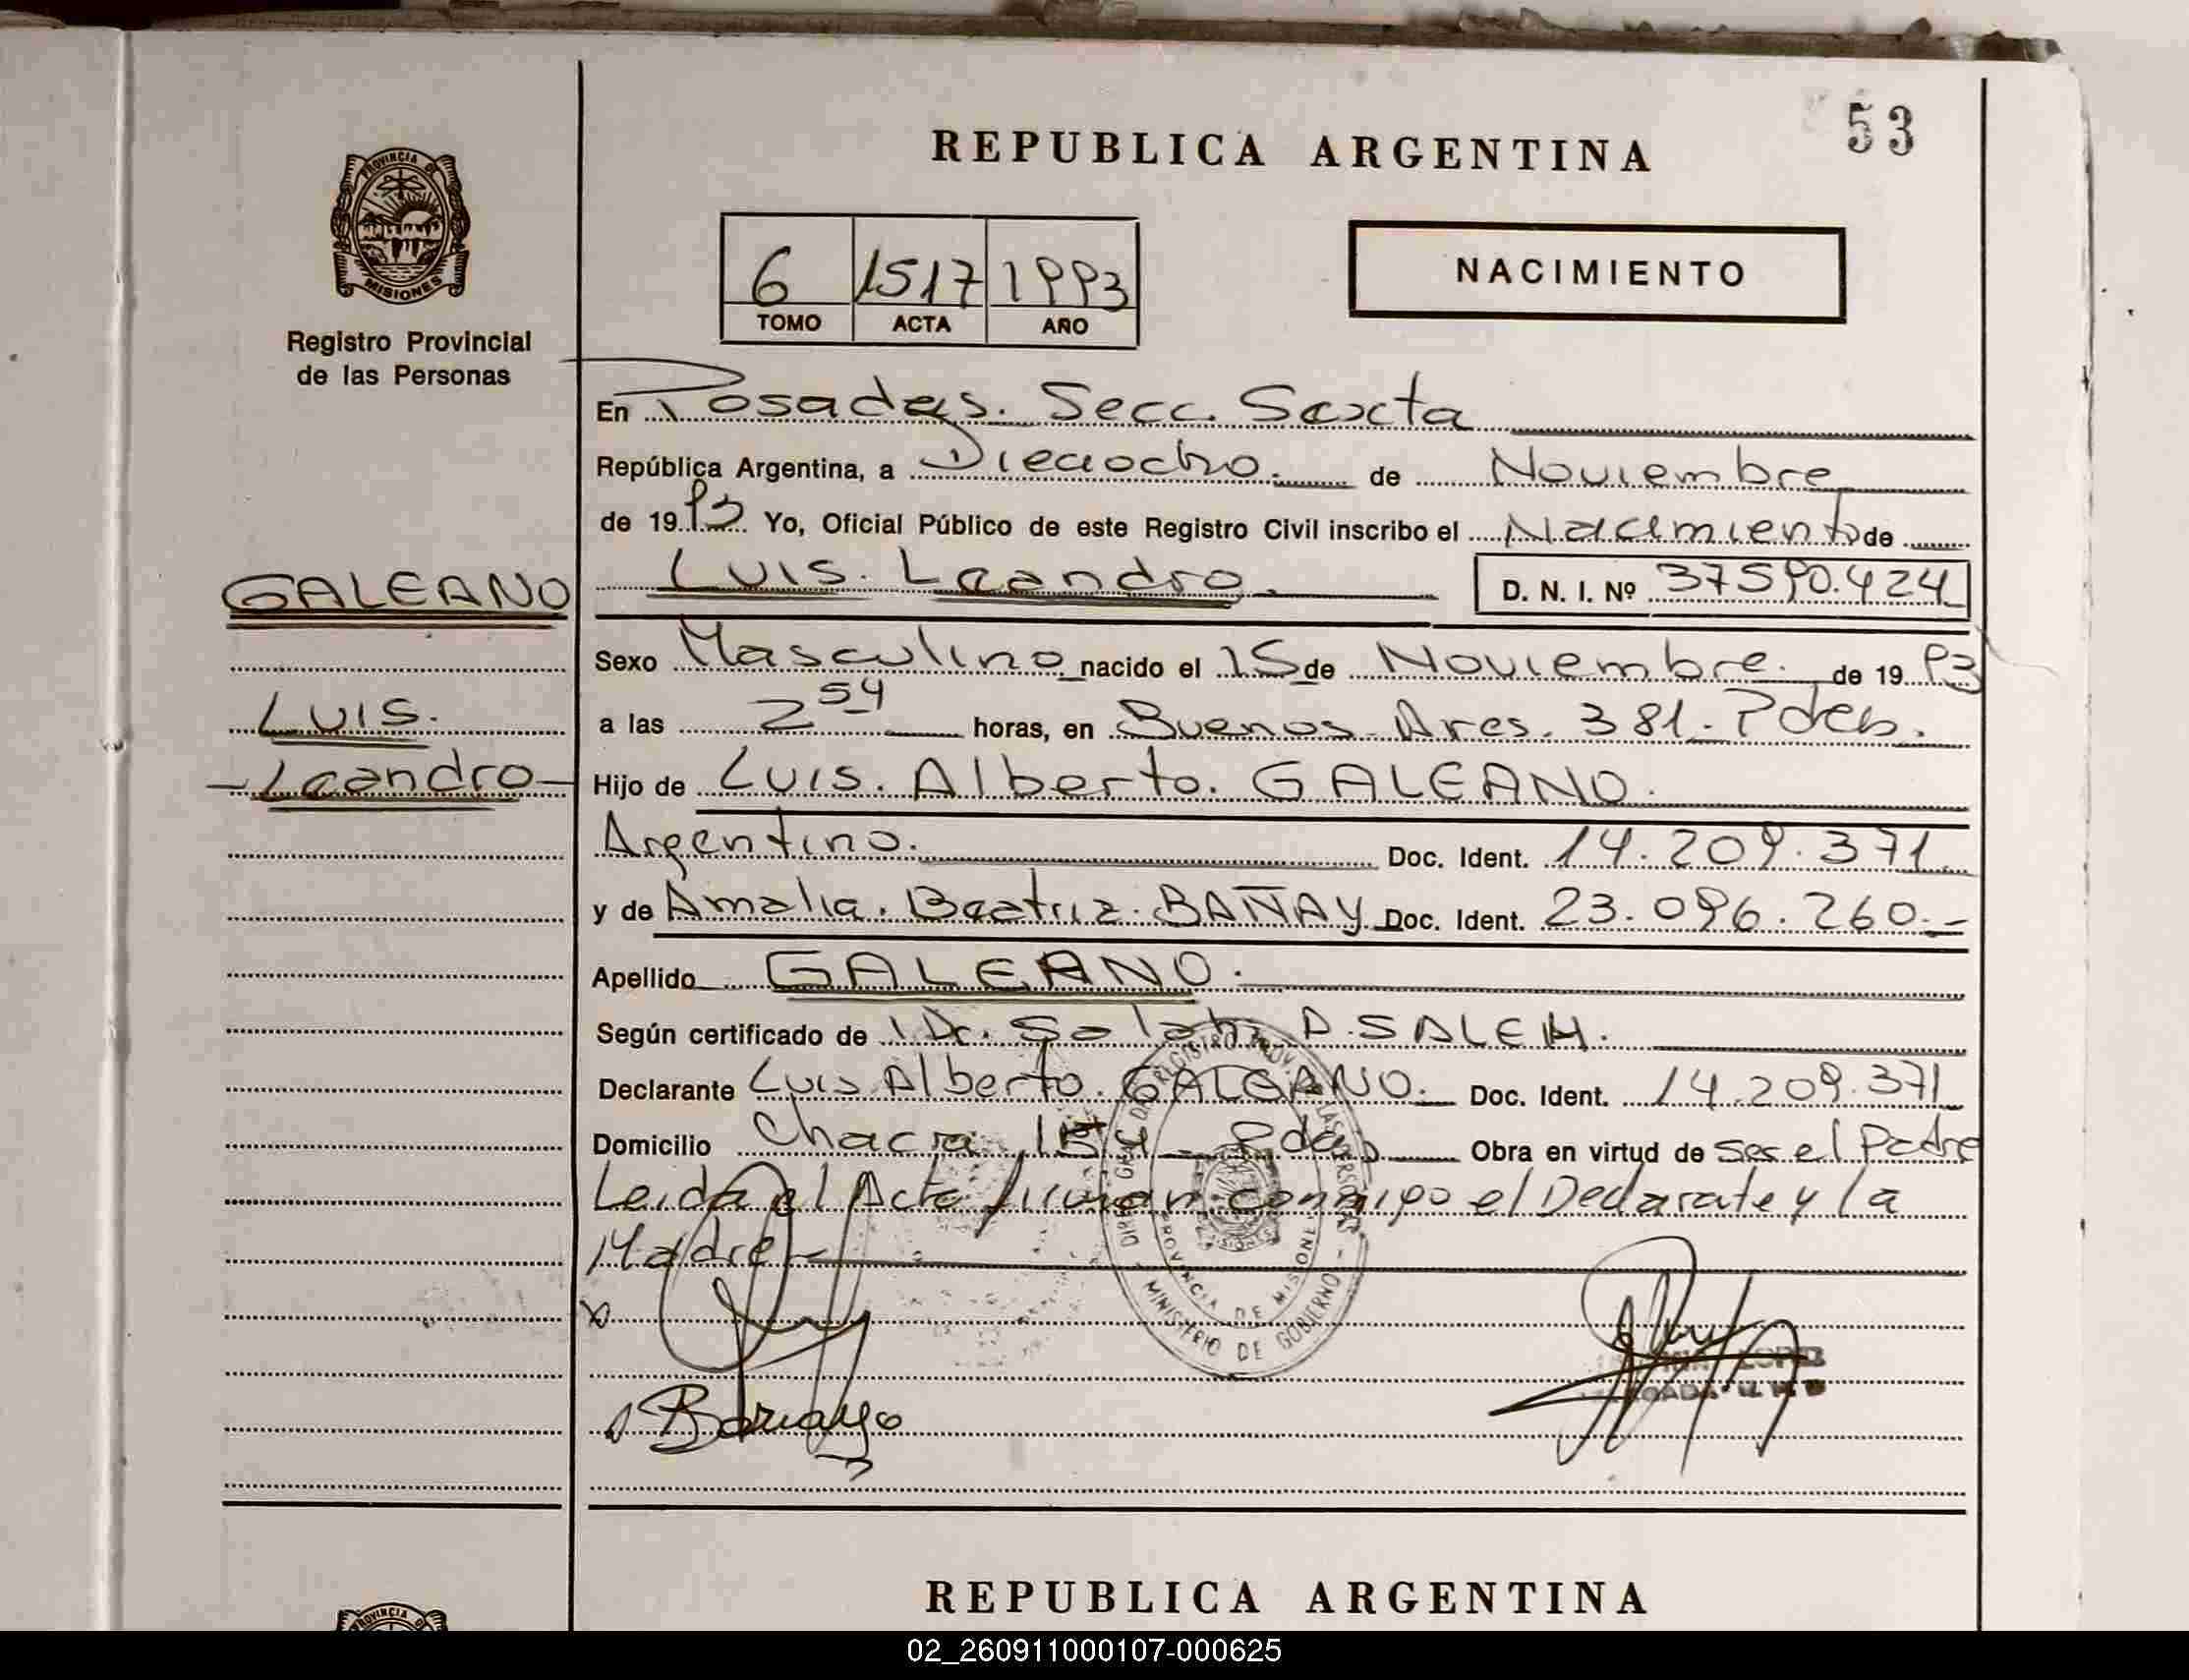 53
REPUBLICA ARGENTINA
PROVINCIA DE
MISIONES
Registro Provincial
de las Personas
6 1517 1993
TOMO ACTA AÑO
NACIMIENTO
En Posadas. Secc. Sexta
República Argentina, a Dieciocho. de Noviembre
de 1993 Yo, Oficial Público de este Registro Civil inscribo el Nacimiento de
GALEANO
Luis. Leandro D. N. I. Nº 37590.424
Sexo Masculino nacido el 15 de Noviembre. de 1993
Luis.
a las 2 54 horas, en Buenos Aires. 381. Pdas.
Leandro
Hijo de Luis. Alberto. GALEANO.
Argentino. Doc. Ident. 14.209.371.
y de Amalia. Beatriz. BAÑAY Doc. Ident. 23.096.260.-
Apellido GALEANO.
Según certificado de Dr. Salah D. SALEH.
Declarante Luis Alberto. GALEANO. Doc. Ident. 14.209.371
Domicilio Chacra Pdas Obra en virtud de ser el Padre
Leida el Acta firman conmigo el Declarate y la
Madre
DIR. GRAL. DEL REGISTRO PROV. DE LAS PERSONAS
PROVINCIA DE MISIONES
MINISTERIO DE GOBIERNO
LOPEZ
REPUBLICA ARGENTINA
PROVINCIA DE
02_260911000107-000625